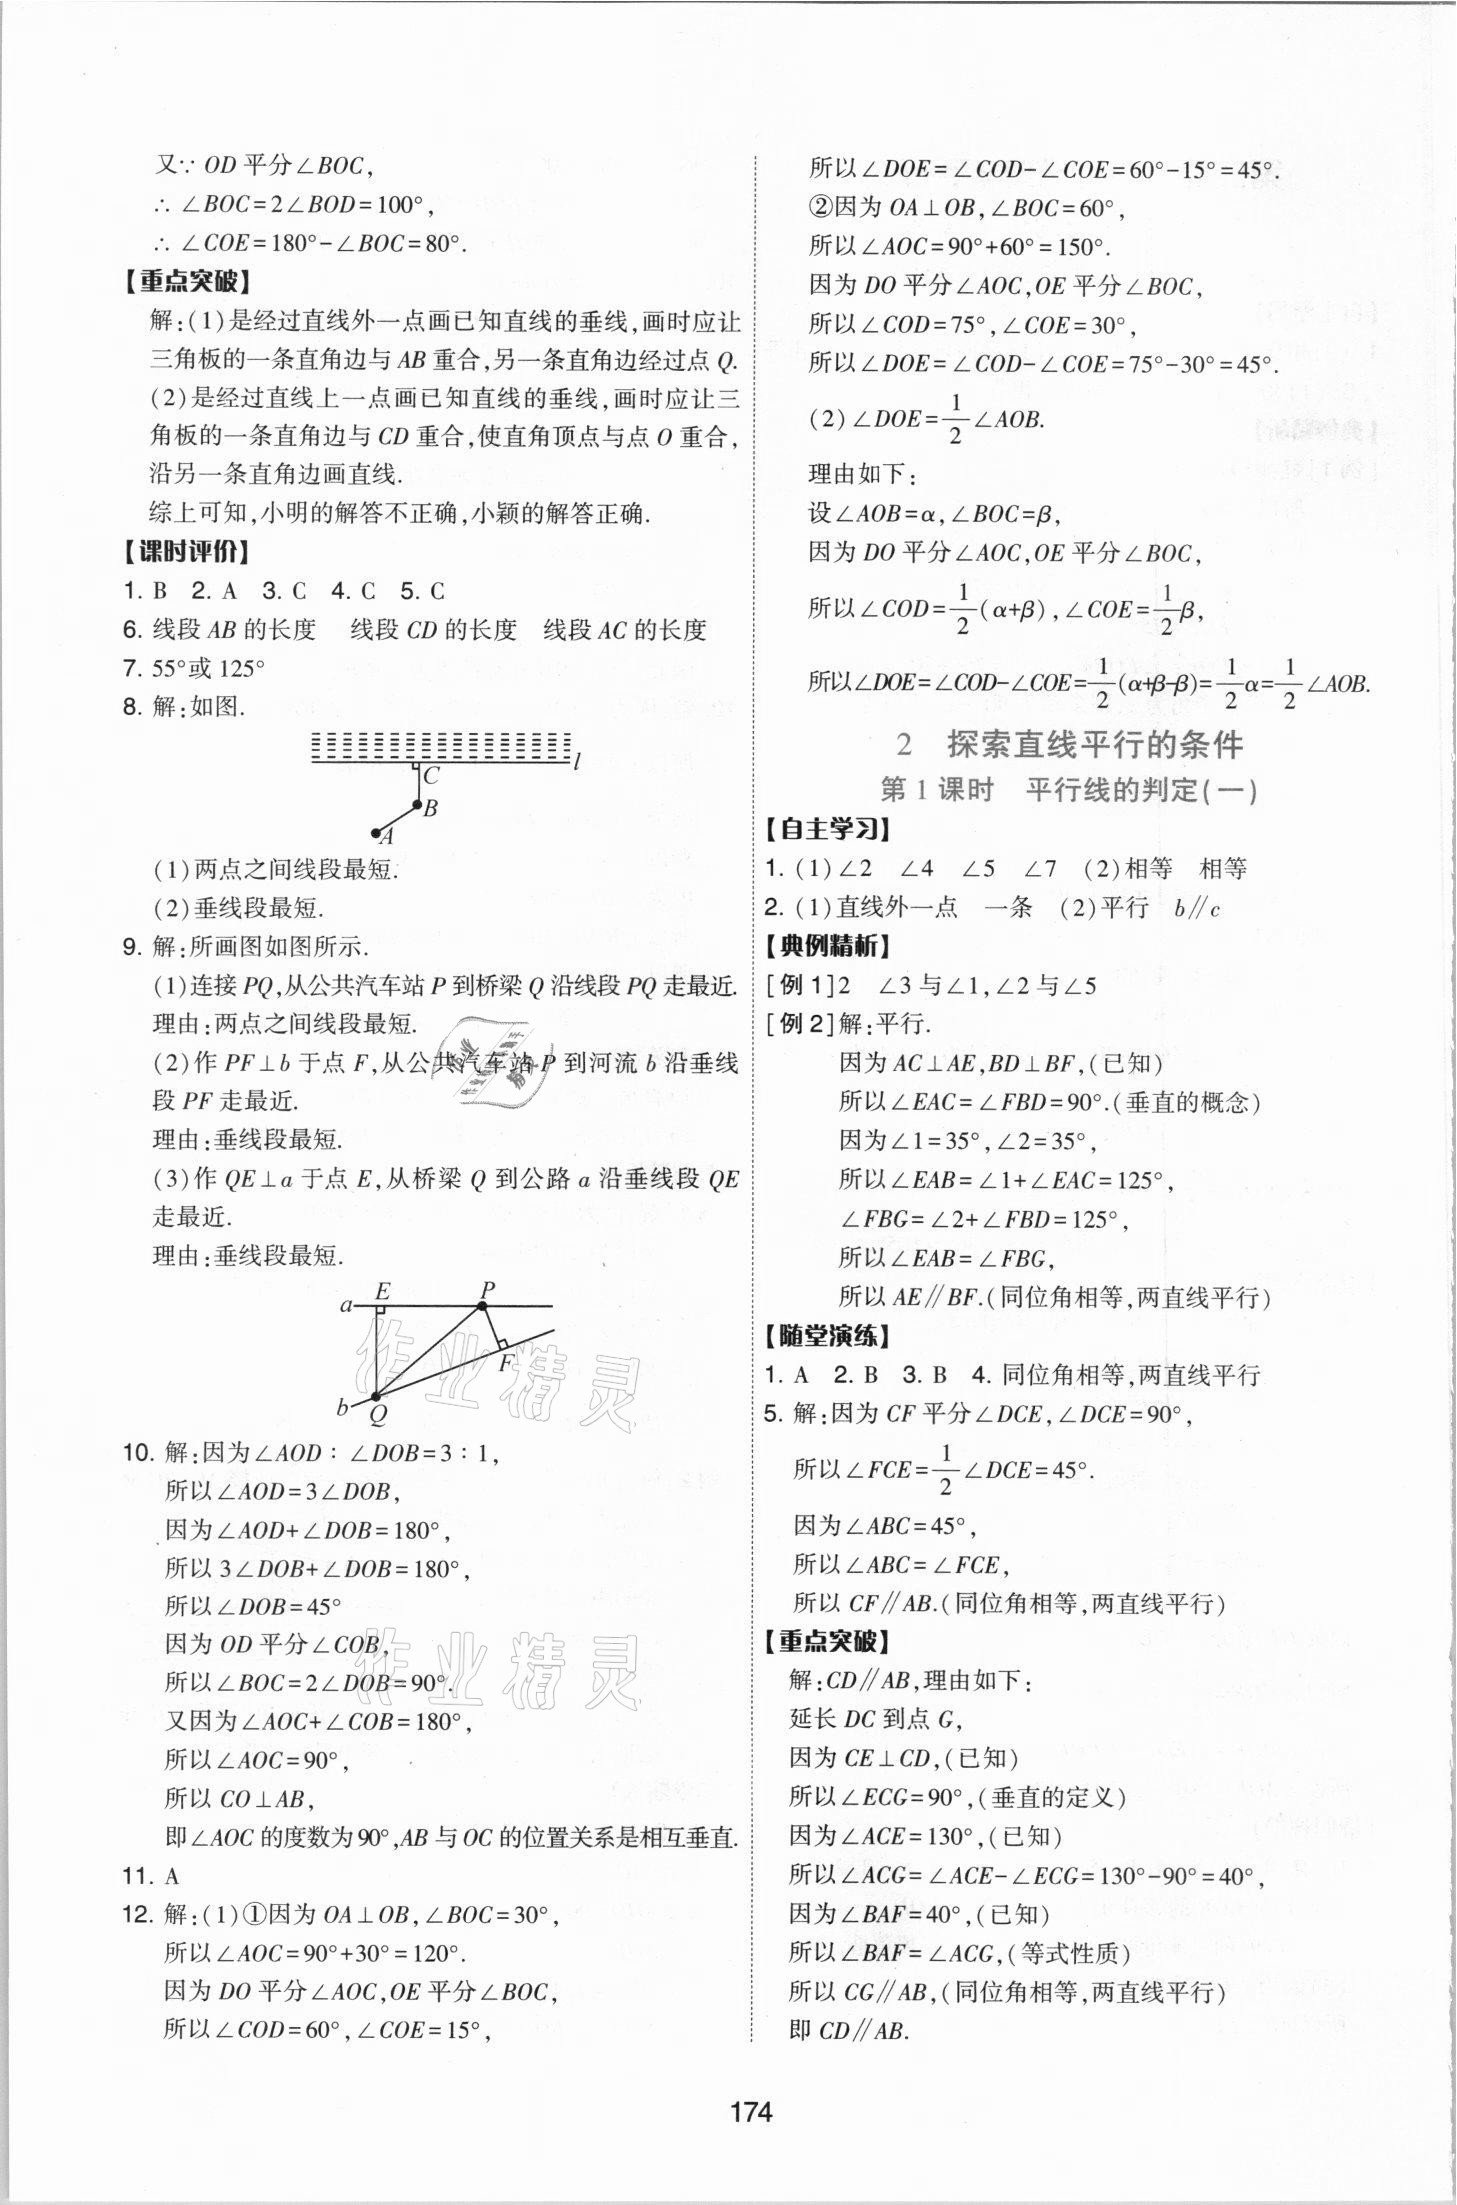 又∵ OD 平分∠BOC,
∴ ∠BOC=2∠BOD=100°,
∴ ∠COE=180°-∠BOC=80°.
【重点突破】
解:(1)是经过直线外一点画已知直线的垂线,画时应让
三角板的一条直角边与 AB 重合,另一条直角边经过点 Q.
(2)是经过直线上一点画已知直线的垂线,画时应让三
角板的一条直角边与 CD 重合,使直角顶点与点 O 重合,
沿另一条直角边画直线.
综上可知,小明的解答不正确,小颖的解答正确.
【课时评价】
1. B 2. A 3. C 4. C 5. C
6. 线段 AB 的长度 线段 CD 的长度 线段 AC 的长度
7. 55°或 125°
8. 解:如图.
l
C
B
A
(1)两点之间线段最短.
(2)垂线段最短.
9. 解:所画图如图所示.
(1)连接 PQ,从公共汽车站 P 到桥梁 Q 沿线段 PQ 走最近.
理由:两点之间线段最短.
(2)作 PF⊥b 于点 F,从公共汽车站 P 到河流 b 沿垂线
段 PF 走最近.
理由:垂线段最短.
(3)作 QE⊥a 于点 E,从桥梁 Q 到公路 a 沿垂线段 QE
走最近.
理由:垂线段最短.
E P
a
F
b Q
作业精灵
10. 解:因为∠AOD∶∠DOB=3∶1,
所以∠AOD=3∠DOB,
因为∠AOD+∠DOB=180°,
所以 3∠DOB+∠DOB=180°,
所以∠DOB=45°
因为 OD 平分∠COB,
作业精灵
所以∠BOC=2∠DOB=90°.
又因为∠AOC+∠COB=180°,
所以∠AOC=90°,
所以 CO⊥AB,
即∠AOC 的度数为 90°,AB 与 OC 的位置关系是相互垂直.
11. A
12. 解:(1)①因为 OA⊥OB,∠BOC=30°,
所以∠AOC=90°+30°=120°.
因为 DO 平分∠AOC,OE 平分∠BOC,
所以∠COD=60°,∠COE=15°,
所以∠DOE=∠COD-∠COE=60°-15°=45°.
②因为 OA⊥OB,∠BOC=60°,
所以∠AOC=90°+60°=150°.
因为 DO 平分∠AOC,OE 平分∠BOC,
所以∠COD=75°,∠COE=30°,
所以∠DOE=∠COD-∠COE=75°-30°=45°.
(2)∠DOE=1/2∠AOB.
理由如下:
设∠AOB=α,∠BOC=β,
因为 DO 平分∠AOC,OE 平分∠BOC,
所以∠COD=1/2(α+β),∠COE=1/2β,
所以∠DOE=∠COD-∠COE=1/2(α+β-β)=1/2α=1/2∠AOB.
2 探索直线平行的条件
第 1 课时 平行线的判定(一)
【自主学习】
1. (1)∠2 ∠4 ∠5 ∠7 (2)相等 相等
2. (1)直线外一点 一条 (2)平行 b∥c
【典例精析】
[例 1]2 ∠3 与∠1,∠2 与∠5
[例 2]解:平行.
因为 AC⊥AE,BD⊥BF,(已知)
所以∠EAC=∠FBD=90°.(垂直的概念)
因为∠1=35°,∠2=35°,
所以∠EAB=∠1+∠EAC=125°,
∠FBG=∠2+∠FBD=125°,
所以∠EAB=∠FBG,
所以 AE∥BF.(同位角相等,两直线平行)
【随堂演练】
1. A 2. B 3. B 4. 同位角相等,两直线平行
5. 解:因为 CF 平分∠DCE,∠DCE=90°,
所以∠FCE=1/2∠DCE=45°.
因为∠ABC=45°,
所以∠ABC=∠FCE,
所以 CF∥AB.(同位角相等,两直线平行)
【重点突破】
解:CD∥AB,理由如下:
延长 DC 到点 G,
因为 CE⊥CD,(已知)
所以∠ECG=90°,(垂直的定义)
因为∠ACE=130°,(已知)
所以∠ACG=∠ACE-∠ECG=130°-90°=40°,
因为∠BAF=40°,(已知)
所以∠BAF=∠ACG,(等式性质)
所以 CG∥AB,(同位角相等,两直线平行)
即 CD∥AB.
174